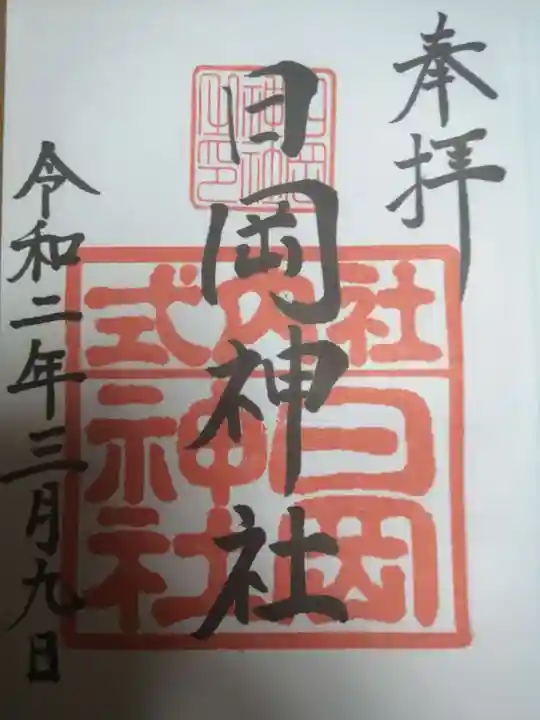 奉拝
日岡神社
式内社
日岡
神社
令和二年三月九日